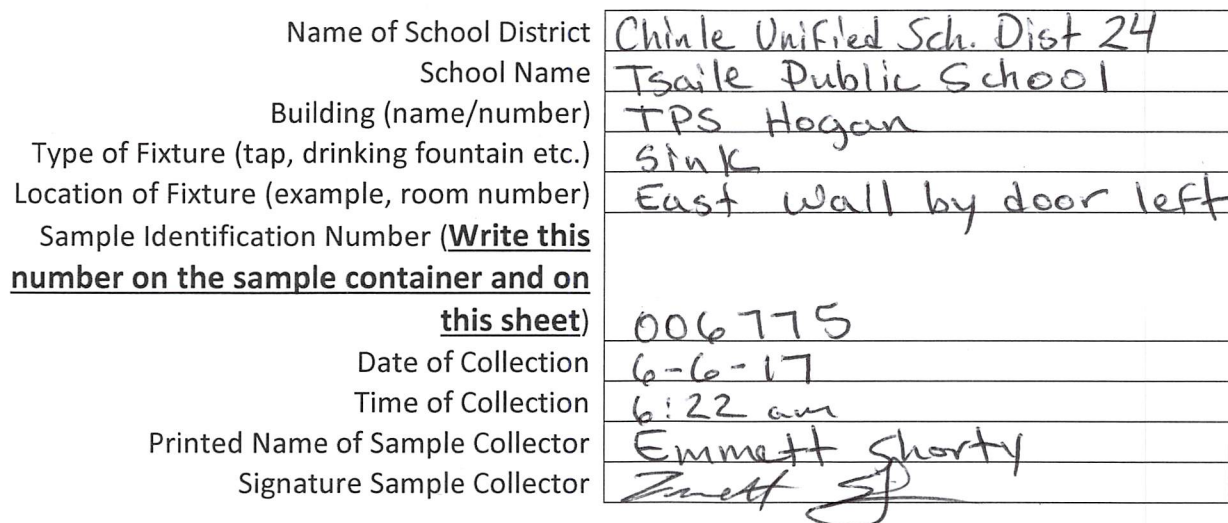 Name of School District Chinle Unified Sch. Dist 24
School Name Tsaile Public School
Building (name/number) TPS Hogan
Type of Fixture (tap, drinking fountain etc.) Sink
Location of Fixture (example, room number) East wall by door left
Sample Identification Number (Write this
number on the sample container and on
this sheet) 006775
Date of Collection 6-6-17
Time of Collection 6:22 am
Printed Name of Sample Collector Emmett Shorty
Signature Sample Collector